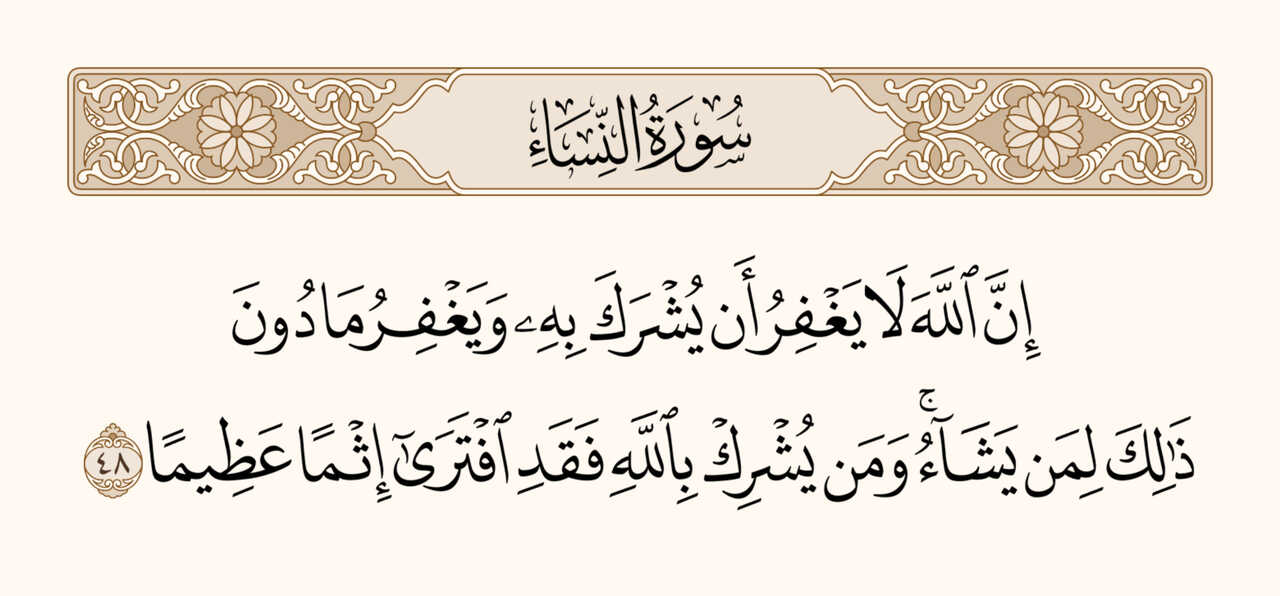 سُورَةُ النِّسَاءِ
إِنَّ ٱللَّهَ لَا يَغْفِرُ أَن يُشْرَكَ بِهِۦ وَيَغْفِرُ مَا دُونَ
ذَٰلِكَ لِمَن يَشَآءُ ۚ وَمَن يُشْرِكْ بِٱللَّهِ فَقَدِ ٱفْتَرَىٰٓ إِثْمًا عَظِيمًا ٤٨